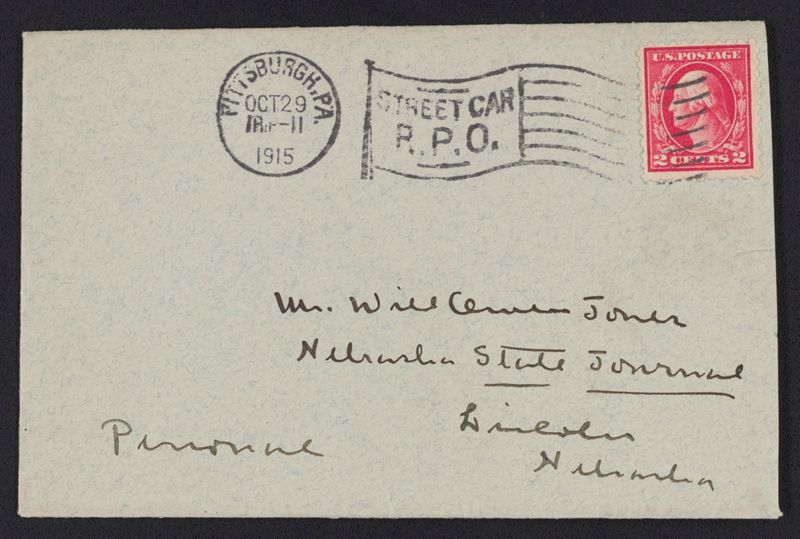 PITTSBURGH, PA.
OCT 29
11
1915
STREET CAR
R.P.O.
U.S. POSTAGE
2 CENTS 2
Mr. Will Owen Jones
Nebraska State Journal
Lincoln
Nebraska
Personal